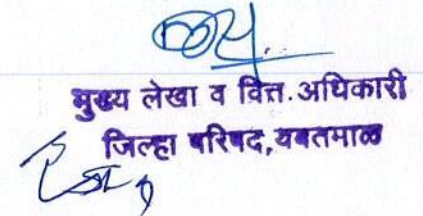 मुख्य लेखा व वित्त.अधिकारी
जिल्हा परिषद,यवतमाळ